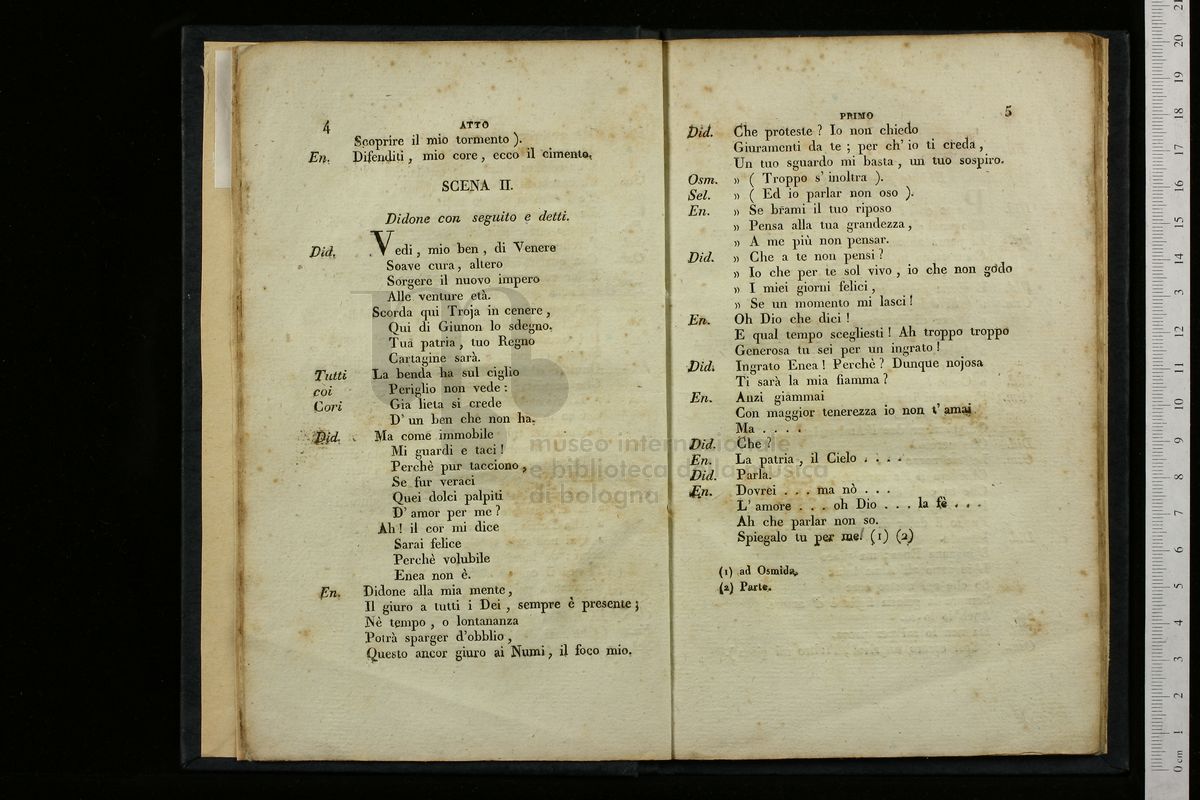 4
ATTO
Scoprire il mio tormento ).
En. Difenditi, mio core, ecco il cimento.
SCENA II.
Didone con seguito e detti.
Did. Vedi, mio ben, di Venere
Soave cura, altero
Sorgere il nuovo impero
Alle venture età.
Scorda qui Troja in cenere,
Qui di Giunon lo sdegno.
Tua patria, tuo Regno
Cartagine sarà.
Tutti La benda ha sul ciglio
coi Periglio non vede :
Cori Gia lieta si crede
D' un ben che non ha.
Did. Ma come immobile
Mi guardi e taci !
Perchè pur tacciono,
Se fur veraci
Quei dolci palpiti
D' amor per me ?
Ah ! il cor mi dice
Sarai felice
Perchè volubile
Enea non è.
En. Didone alla mia mente,
Il giuro a tutti i Dei, sempre è presente ;
Nè tempo, o lontananza
Potrà sparger d'obblio,
Questo ancor giuro ai Numi, il foco mio.
PRIMO
5
Did. Che proteste ? Io non chiedo
Giuramenti da te ; per ch' io ti creda,
Un tuo sguardo mi basta, un tuo sospiro.
Osm. » ( Troppo s' inoltra ).
Sel. » ( Ed io parlar non oso ).
En. » Se brami il tuo riposo
» Pensa alla tua grandezza,
» A me più non pensar.
Did. » Che a te non pensi ?
» Io che per te sol vivo, io che non godo
» I miei giorni felici,
» Se un momento mi lasci !
En. Oh Dio che dici !
E qual tempo scegliesti ! Ah troppo troppo
Generosa tu sei per un ingrato !
Did. Ingrato Enea ! Perchè ? Dunque nojosa
Ti sarà la mia fiamma ?
En. Anzi giammai
Con maggior tenerezza io non t' amai
Ma . . . .
Did. Che ?
En. La patria, il Cielo . . . .
Did. Parla.
En. Dovrei . . . ma nò . . .
L' amore . . . oh Dio . . . la fè . . .
Ah che parlar non so.
Spiegalo tu per me. (1) (2)
(1) ad Osmida.
(2) Parte.
museo internazionale
e biblioteca della musica
di bologna
0 cm 1 2 3 4 5 6 7 8 9 10 11 12 13 14 15 16 17 18 19 20 21